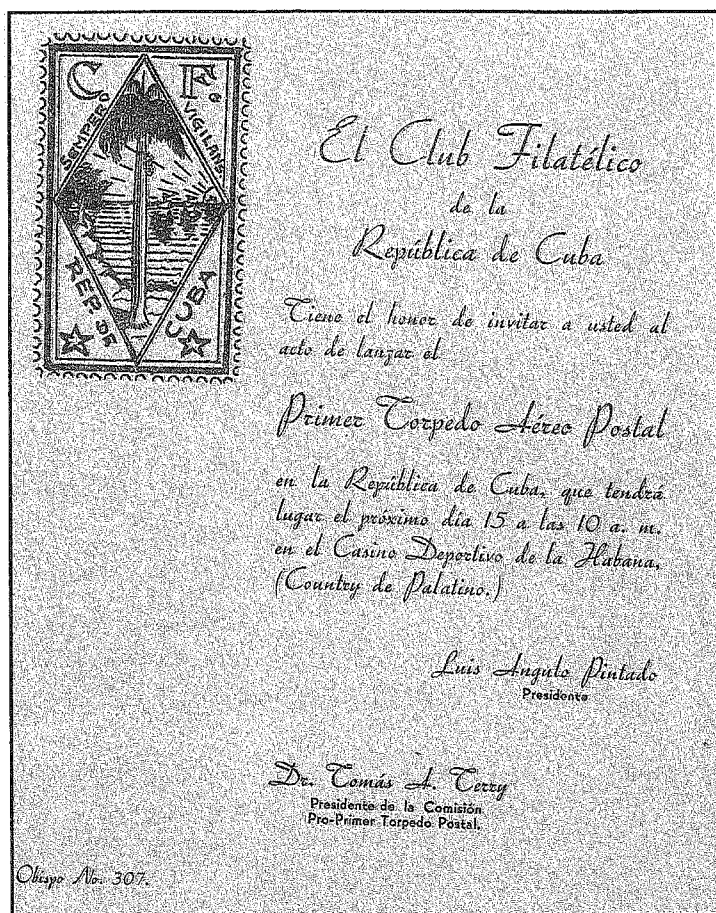 C. F.
SEMPER VIGILANS
REP. DE CUBA
El Club Filatélico
de la
República de Cuba
Tiene el honor de invitar a usted al
acto de lanzar el
Primer Torpedo Aéreo Postal
en la República de Cuba, que tendrá
lugar el próximo día 15 a las 10 a. m.
en el Casino Deportivo de la Habana.
(Country de Palatino.)
Luis Angulo Pintado
Presidente
Dr. Tomás A. Terry
Presidente de la Comisión
Pro-Primer Torpedo Postal.
Obispo No. 307.